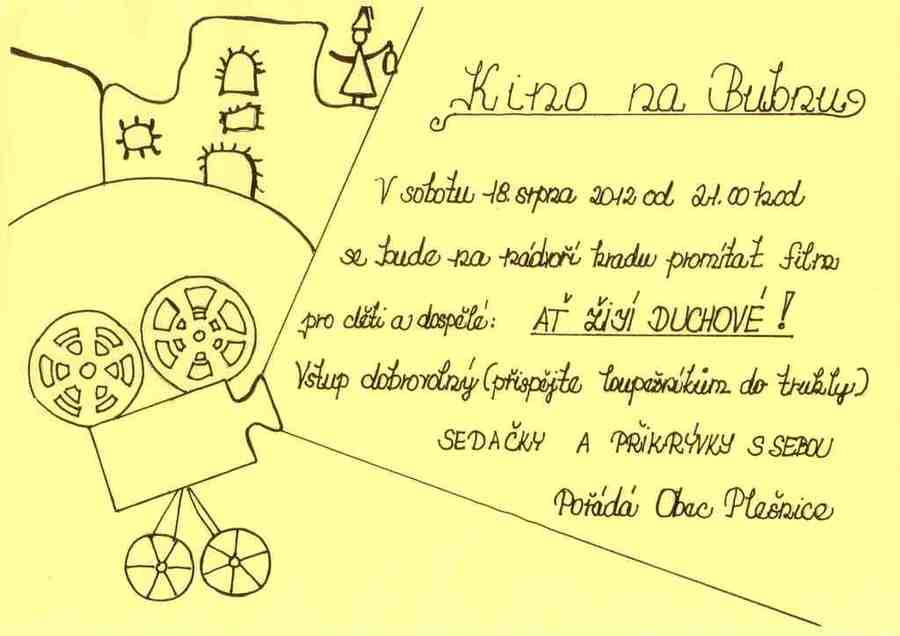 Kino na Bubnu
V sobotu 18. srpna 2012 od 21.00 hod
se bude na nádvoří hradu promítat film
pro děti a dospělé: AŤ ŽIJÍ DUCHOVÉ!
Vstup dobrovolný (přispějte loupežníkům do truhly)
SEDAČKY A PŘIKRÝVKY S SEBOU
Pořádá Obec Plešnice